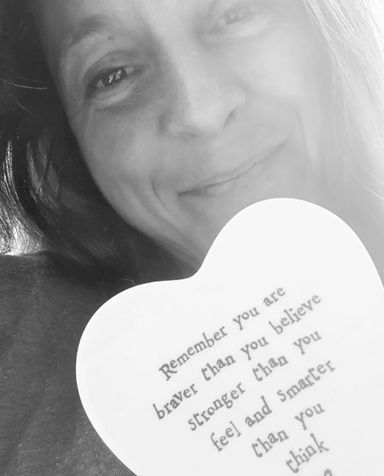 Remember you are
braver than you believe
stronger than you
feel and smarter
than you
think